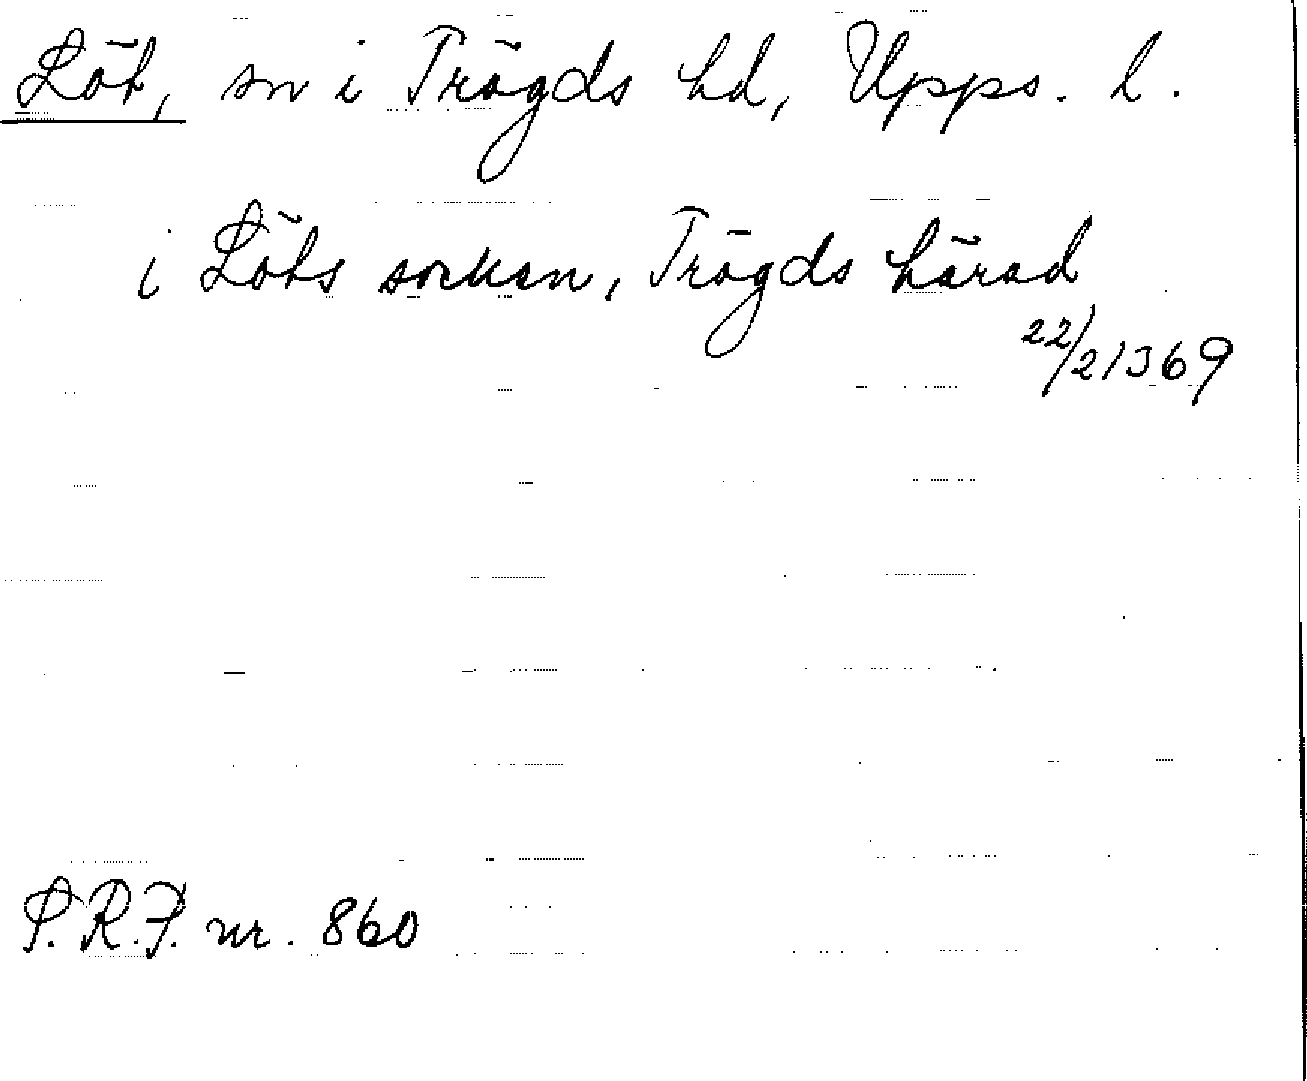 Löt, sn i Trögds hd, Upps. l.
i Löts sockun, Trögds härad
22/2 1369
P.R.F. nr. 860